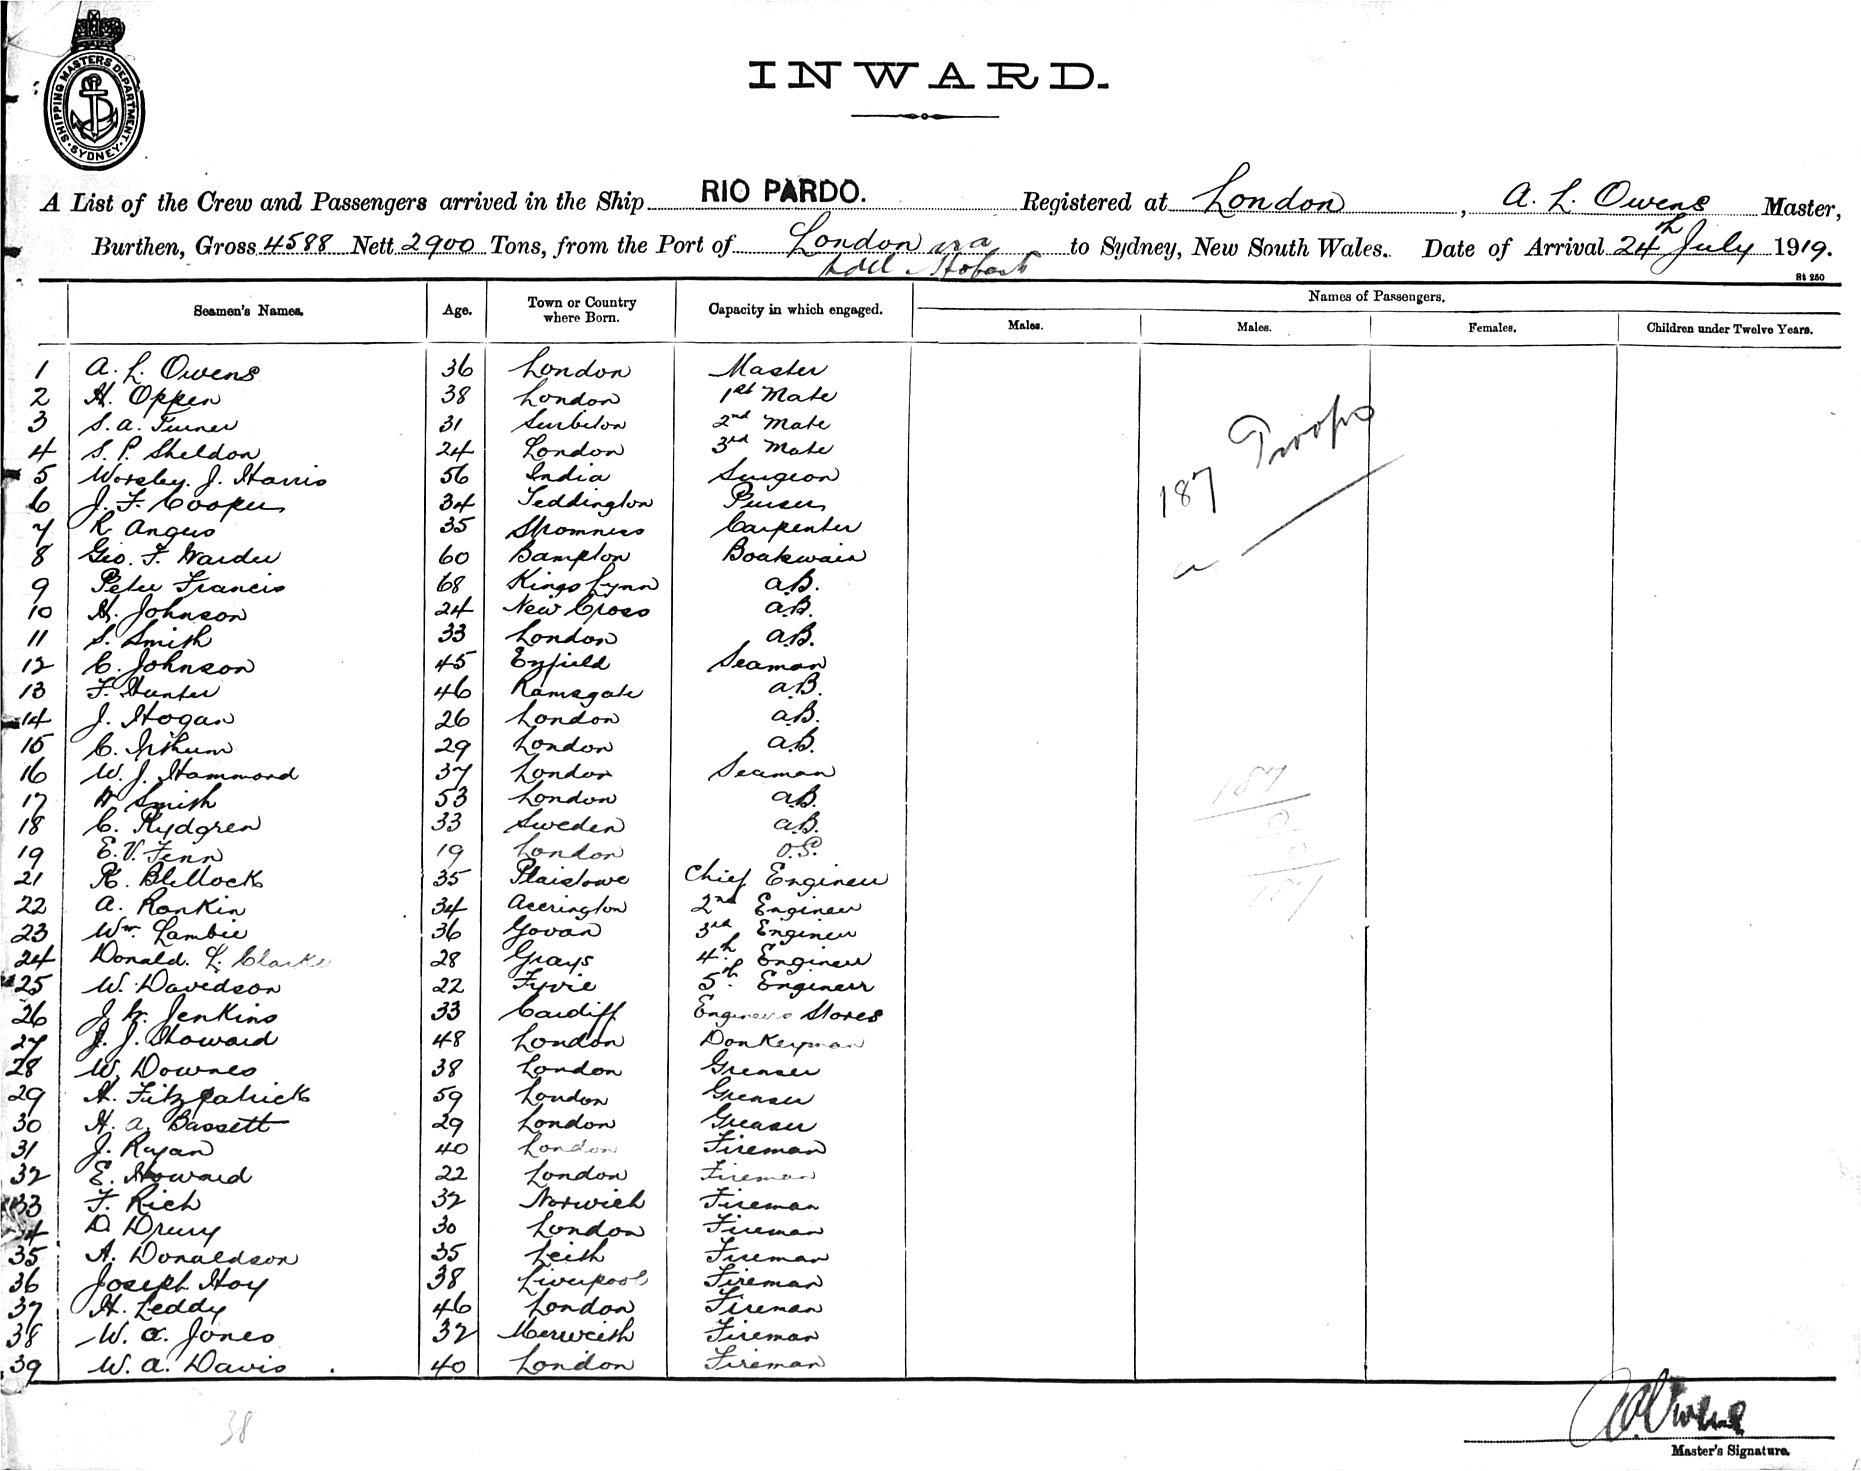 SHIPPING MASTERS DEPARTMENT. SYDNEY.
INWARD.
A List of the Crew and Passengers arrived in the Ship RIO PARDO. Registered at London, A. L. Owens Master,
Burthen, Gross 4588 Nett 2900 Tons, from the Port of London via to Sydney, New South Wales. Date of Arrival 24th July 1919.
Adel Hobart
St 250
Seamen's Names. Age. Town or Country where Born. Capacity in which engaged. Names of Passengers.
Males. Males. Females. Children under Twelve Years.
1 A. L. Owens 36 London Master
2 H. Oppen 38 London 1st Mate
3 S. A. Turner 31 Surbiton 2nd Mate
4 S. P. Sheldon 24 London 3rd Mate
5 Worsley. J. Harris 56 India Surgeon
6 J. F. Cooper 34 Teddington Purser
7 R Angus 35 Stromness Carpenter
8 Geo. F. Warder 60 Bampton Boatswain
9 Peter Francis 68 Kings Lynn A.B.
10 H. Johnson 24 New Cross A.B.
11 S. Smith 33 London A.B.
12 C. Johnson 45 Enfield Seaman
13 F. Hunter 46 Ramsgate A.B.
14 J. Hogan 26 London A.B.
15 C. 29 London A.B.
16 W. J. Hammond 37 London Seaman
17 H Smith 53 London A.B.
18 C. Rydgren 33 Sweden A.B.
19 E. V. Fenn 19 London O.S.
21 R. Blellock 35 Plaistowe Chief Engineer
22 A. Rankin 34 Accrington 2nd Engineer
23 Wm. Lambie 36 Govan 3rd Engineer
24 Donald. L. Clarke 28 Grays 4th Engineer
25 W. Davidson 22 Fyvie 5th Engineer
26 J. W. Jenkins 33 Cardiff Engineers Stores
27 J. J. Howard 48 London Donkeyman
28 W. Downes 38 London Greaser
29 H. Fitzpatrick 59 London Greaser
30 H. A. Bassett 29 London Greaser
31 J. Ryan 40 London Fireman
32 E. Howard 22 London Fireman
33 F. Rich 32 Norwich Fireman
34 D. Drury 30 London Fireman
35 A. Donaldson 35 Leith Fireman
36 Joseph Hoy 38 Liverpool Fireman
37 H. Leddy 46 London Fireman
38 W. A. Jones 32 Fireman
39 W. A. Davis 40 London Fireman
187 Troops
187
0
0
187
38
A. L. Owens
Master's Signature.